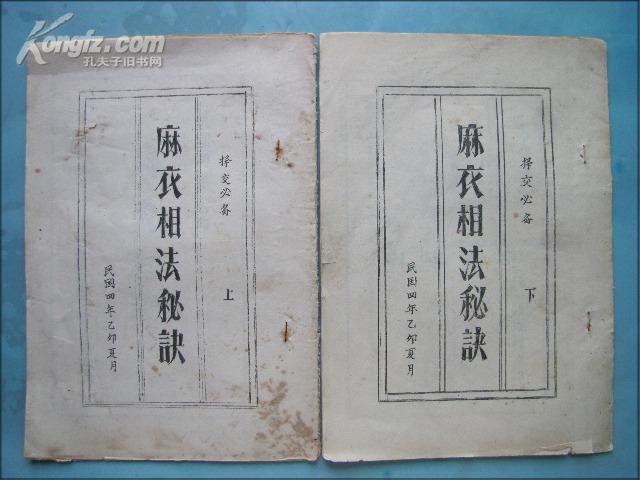 Kongfz.com
孔夫子旧书网
择交必备
上
麻衣相法秘訣
民国四年乙卯夏月
择交必备
下
麻衣相法秘訣
民国四年乙卯夏月